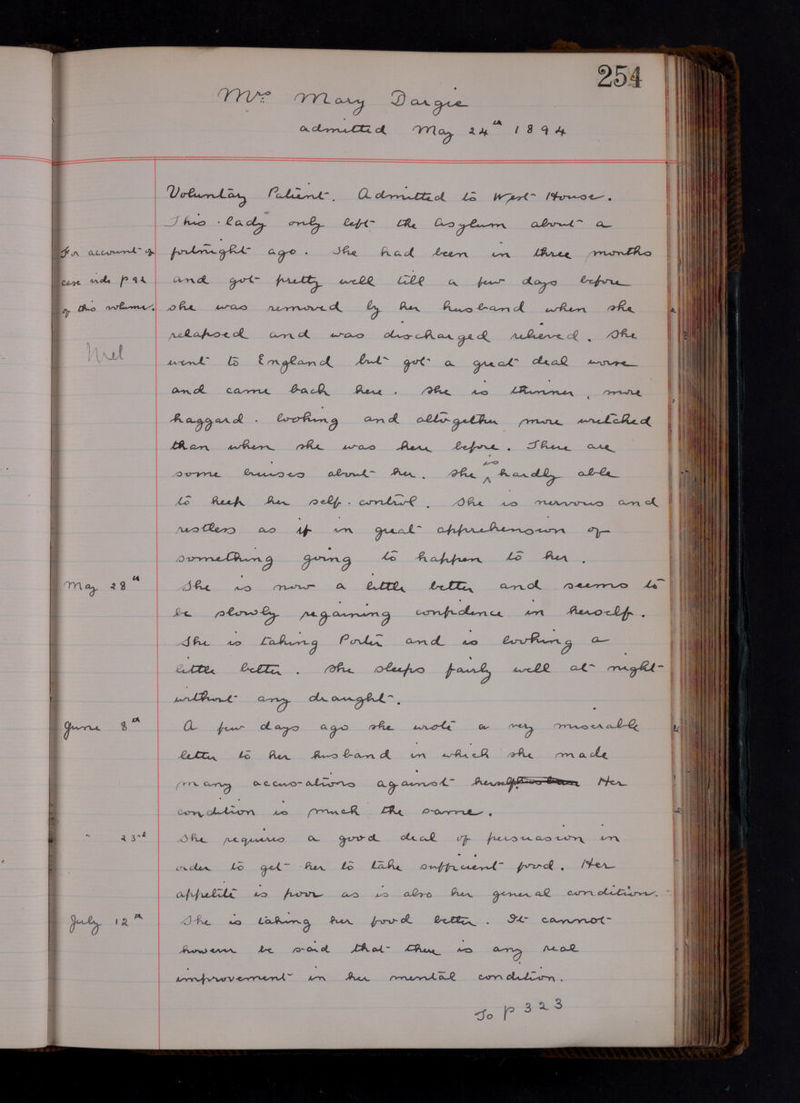 254
Mrs Mary Dargie
admitted May 24th 1894
Voluntary Patient. Admitted to West House.
This lady only left the Asylum about a
For account of fortnight ago. She had been in three months
case vide p 92 and got pretty well till a few days before
of this volume. she was removed by her husband when she
relapsed and was discharged relieved. She
went to England but got a great deal worse
and came back here. She is thinner, more
haggard-looking and altogether more wretched
than when she was here before. There are
some bruises about her. She is hardly able
to keep her self-control. She is nervous and
restless as if in great apprehension of
something going to happen to her.
May 28th She is now a little better and seems to
be slowly regaining confidence in herself.
She is taking Porter and is looking a
little better. She sleeps fairly well at night
without any draught.
June 8th A few days ago she wrote a very miserable
letter to her husband in which she made
many accusations against herself Her
condition is much the same.
" 23rd She requires a good deal of persuasion in
order to get her to take sufficient food. Her
appetite is poor as is also her general condition.
July 12th She is taking her food better. It cannot
however be said that there is any real
improvement in her mental condition.
To p 323